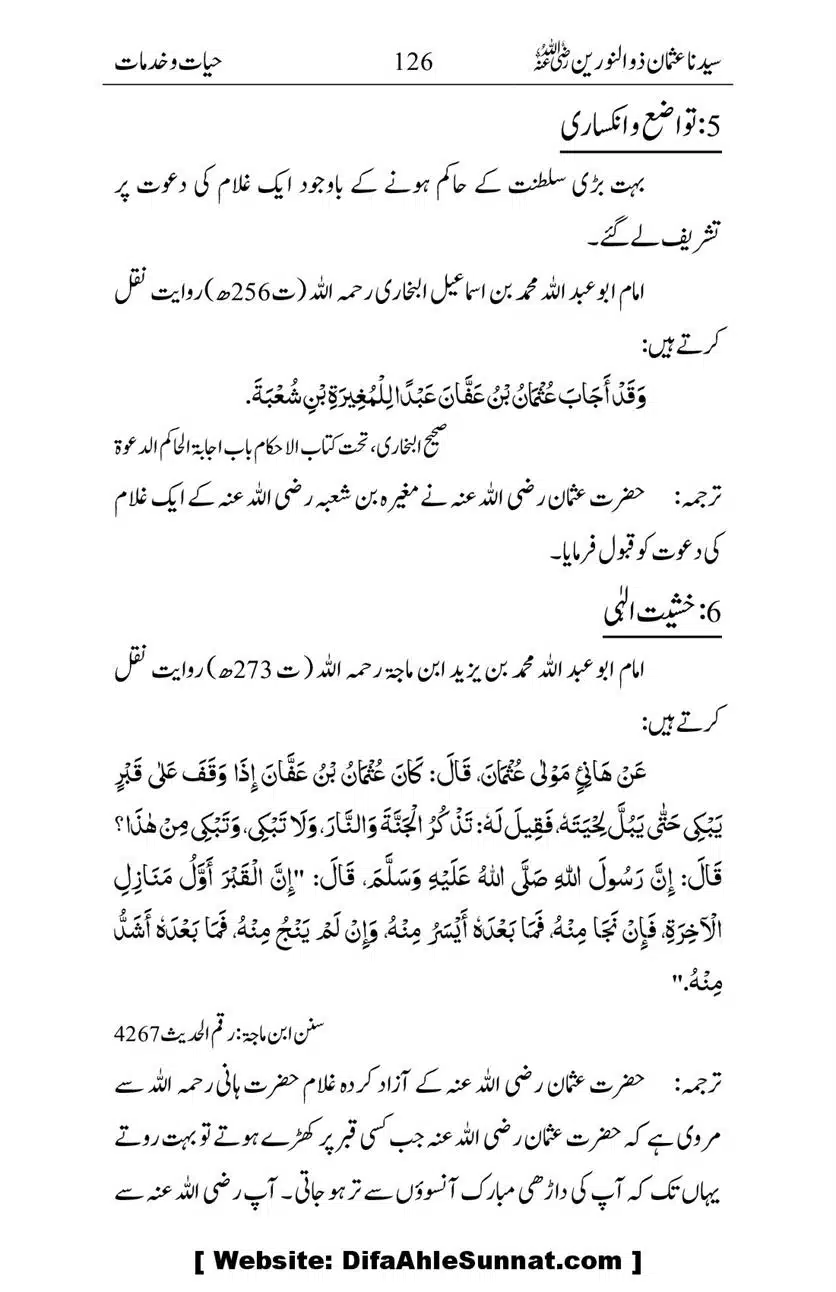 سیدنا عثمان ذوالنورین رضی اللہ عنہ 126 حیات و خدمات
5: تواضع و انکساری
بہت بڑی سلطنت کے حاکم ہونے کے باوجود ایک غلام کی دعوت پر
تشریف لے گئے۔
امام ابو عبد اللہ محمد بن اسماعیل البخاری رحمہ اللہ (ت 256ھ) روایت نقل
کرتے ہیں:
وَقَدْ أَجَابَ عُثْمَانُ بْنُ عَفَّانَ عَبْدًا لِلْمُغِيرَةِ بْنِ شُعْبَةَ.
صحیح البخاری، تحت کتاب الاحکام باب اجابۃ الحاکم الدعوۃ
ترجمہ: حضرت عثمان رضی اللہ عنہ نے مغیرہ بن شعبہ رضی اللہ عنہ کے ایک غلام
کی دعوت کو قبول فرمایا۔
6: خشیت الٰہی
امام ابو عبد اللہ محمد بن یزید ابن ماجۃ رحمہ اللہ (ت 273ھ) روایت نقل
کرتے ہیں:
عَنْ هَانِئٍ مَوْلٰى عُثْمَانَ، قَالَ: كَانَ عُثْمَانُ بْنُ عَفَّانَ إِذَا وَقَفَ عَلٰى قَبْرٍ
يَبْكِي حَتّٰى يَبُلَّ لِحْيَتَهٗ، فَقِيلَ لَهٗ: تَذْكُرُ الْجَنَّةَ وَالنَّارَ، وَلَا تَبْكِي، وَتَبْكِي مِنْ هٰذَا؟
قَالَ: إِنَّ رَسُولَ اللهِ صَلَّى اللهُ عَلَيْهِ وَسَلَّمَ، قَالَ: "إِنَّ الْقَبْرَ أَوَّلُ مَنَازِلِ
الْآخِرَةِ، فَإِنْ نَجَا مِنْهُ، فَمَا بَعْدَهٗ أَيْسَرُ مِنْهُ، وَإِنْ لَمْ يَنْجُ مِنْهُ، فَمَا بَعْدَهٗ أَشَدُّ
مِنْهُ."
سنن ابن ماجۃ: رقم الحدیث 4267
ترجمہ: حضرت عثمان رضی اللہ عنہ کے آزاد کردہ غلام حضرت ہانی رحمہ اللہ سے
مروی ہے کہ حضرت عثمان رضی اللہ عنہ جب کسی قبر پر کھڑے ہوتے تو بہت روتے
یہاں تک کہ آپ کی داڑھی مبارک آنسوؤں سے تر ہو جاتی۔ آپ رضی اللہ عنہ سے
[ Website: DifaAhleSunnat.com ]